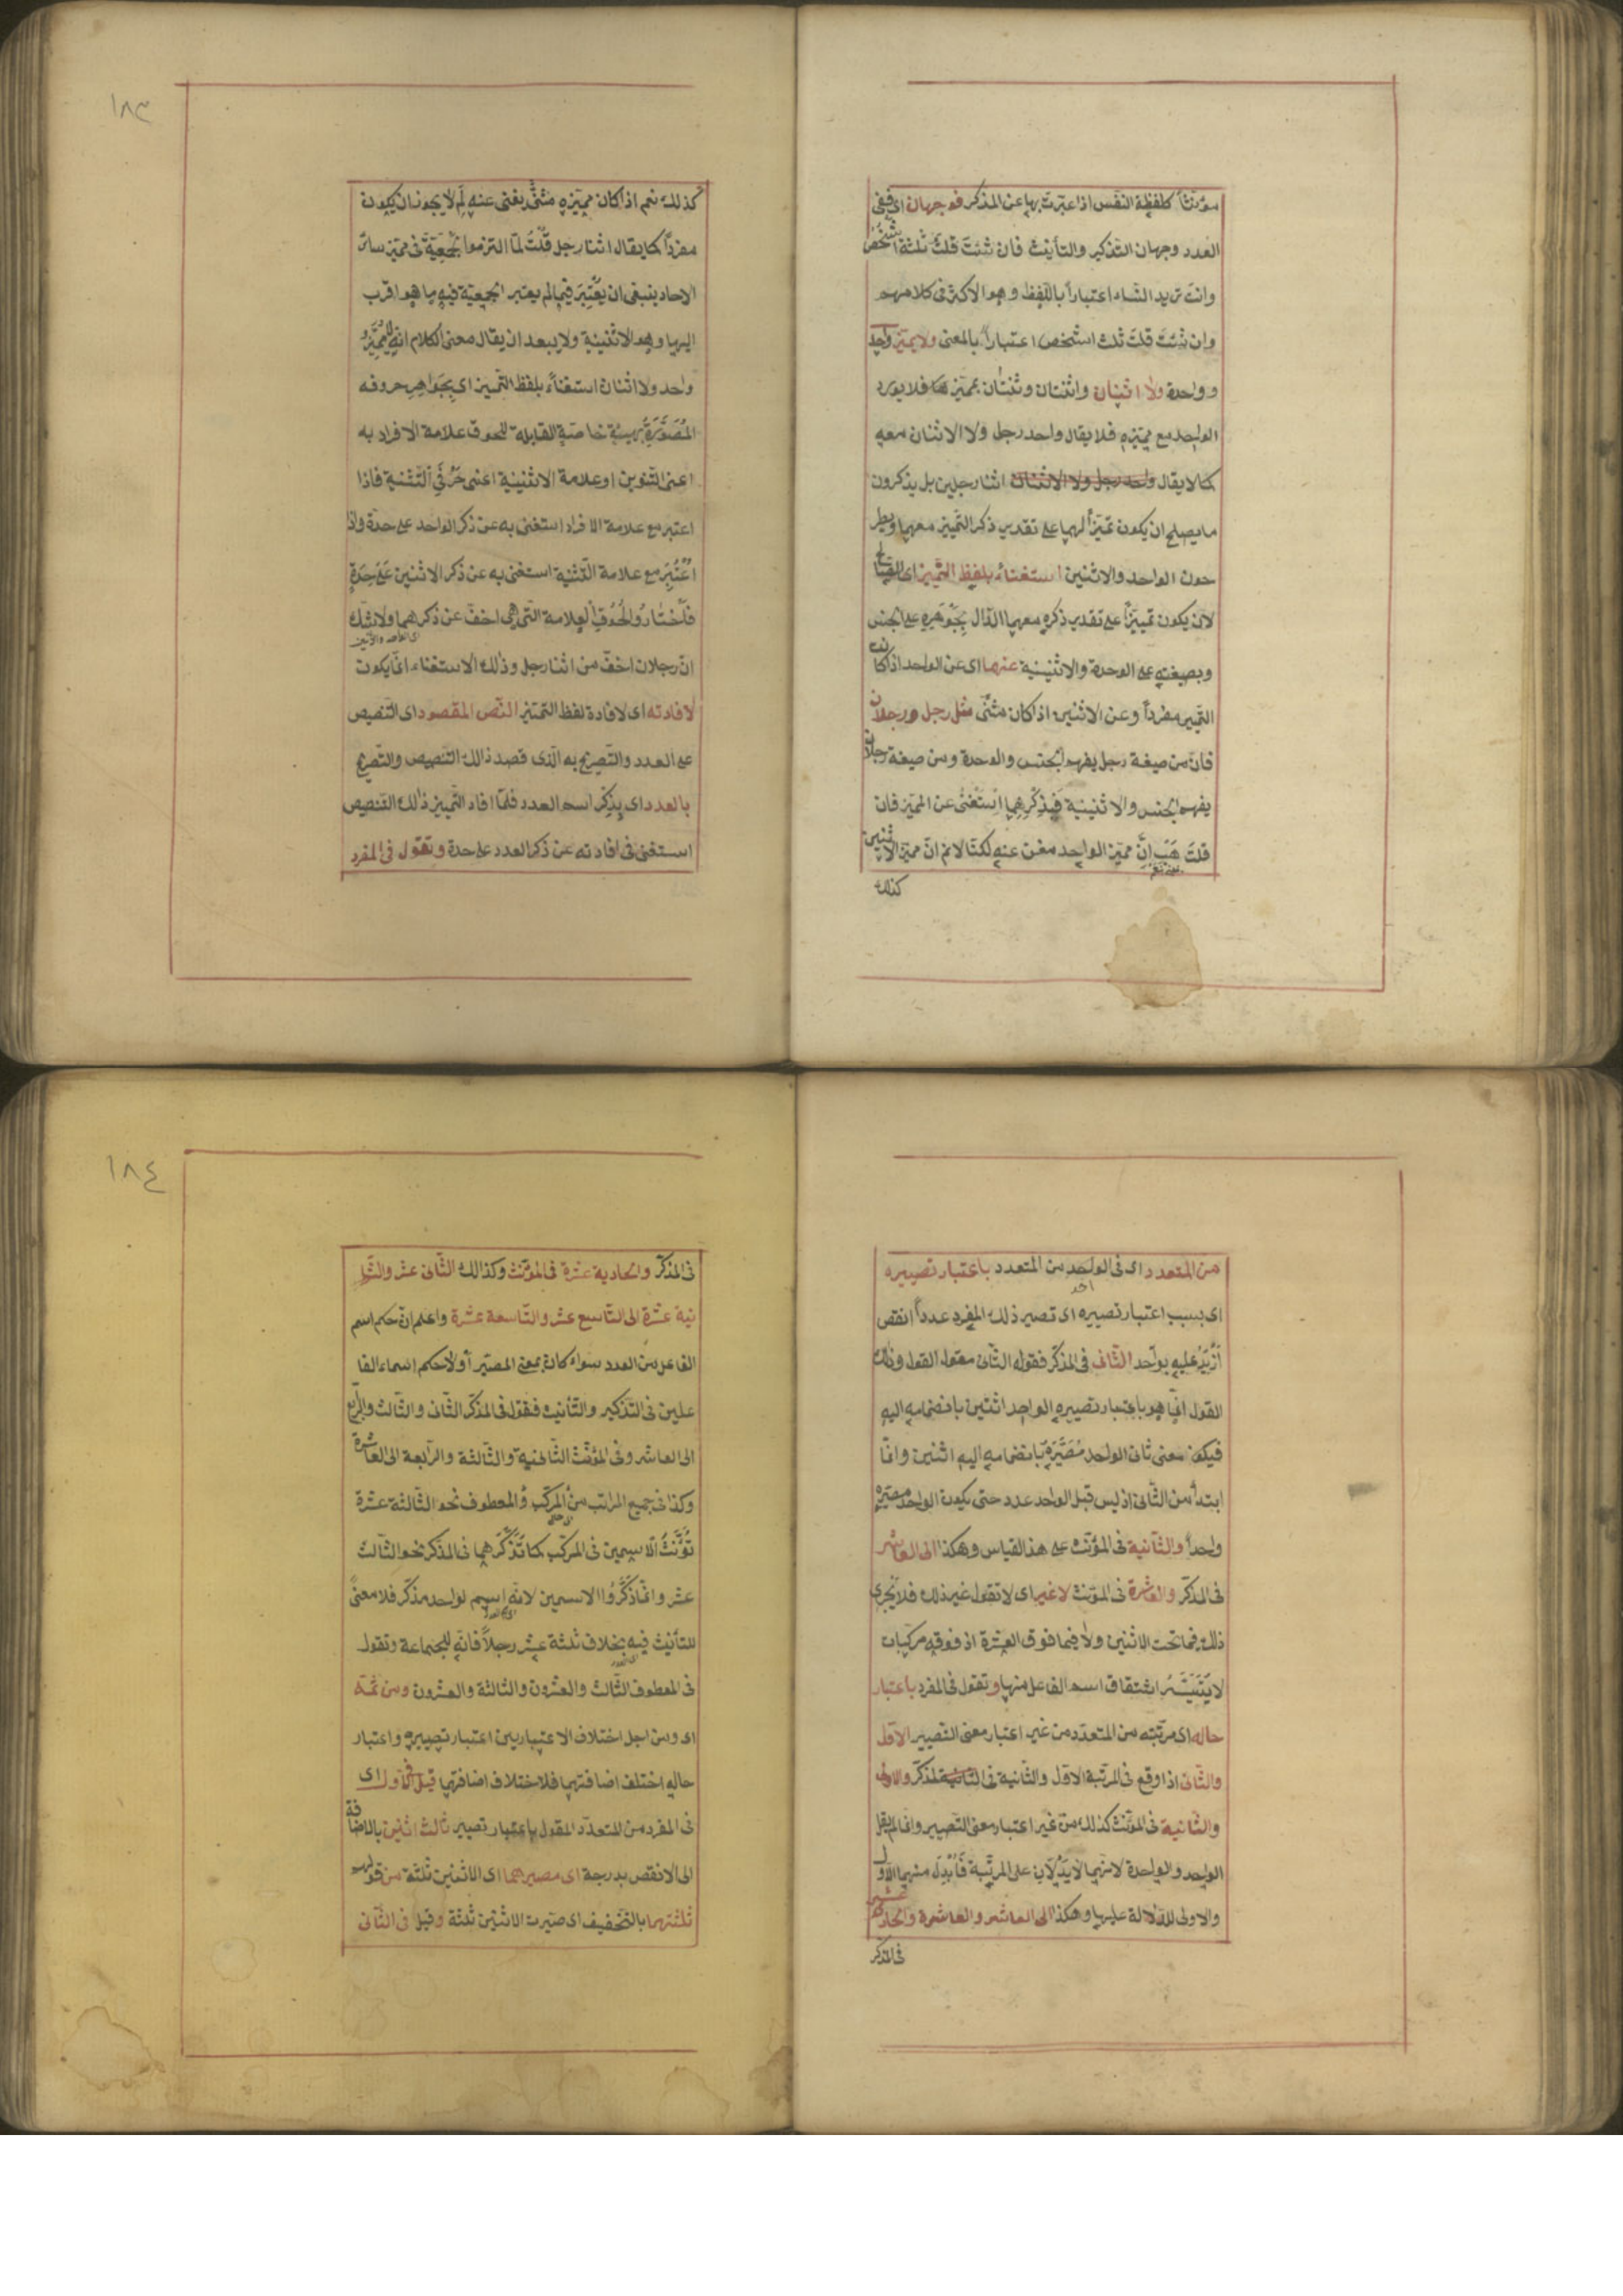 مؤنثاً كلفظة النفس اذا عبّرت بها عن المذكر فوجهان اى ففى
العدد وجهان التذكير والتأنيث فان شئت قلت ثلثة اشخص
وانت تريد النساء اعتباراً باللفظ وهو الاكثر فى كلامهم
وان شئت قلت ثلث اشخص اعتباراً بالمعنى ولا يميز واحد
وواحدة ولا اثنان واثنتان وثنتان بمميز هما فلا يورد
الواحد مع مميزه فلا يقال واحد رجل ولا الاثنان معه
كما لا يقال واحد رجل ولا الاثنان اثنا رجلين بل يذكرون
ما يصلح ان يكون تميّزاً لهما على تقدير ذكر التمييز معهما ويطر
حون الواحد والاثنين استغناء بلفظ التمييز اى الصالح
لان يكون تمييزاً على تقدير ذكره معهما الدّال بجوهره على الجنس
وبصيغته على الوحدة والاثنينية عنهما اى عن الواحد اذا كان
التمييز مفرداً وعن الاثنين اذا كان مثنّى مثل رجل ورجلان
فان من صيغة رجل يفهم الجنس والوحدة ومن صيغة رجلان
يفهم الجنس والاثنينية فبذكرهما استغنى عن المميز فان
قلت هَب انّ مميّز الواحد مغن عنه لكنّا لا نم انّ مميز الاثنين
كذلك
١٨٣
كذلك نعم اذا كان مميّزه مثنّى يغنى عنه لِمَ لا يجوز ان يكون
مفرداً كما يقال اثنا رجل قلتُ لمّا التزموا الجمعيّة فى مميز سائر
الاحاد ينبغى ان يُعتبر فيما لم يعتبر الجمعيّة فيه ما هو اقرب
اليها وهو الاثنينية ولا يبعد ان يقال معنى الكلام انه لا يُميَّزُ
واحد ولا اثنان استغناءً بلفظ التمييز اى بجواهر حروفه
المُصَوَّرَةِ بهيئة خاصّةٍ القابلة للحوق علامة الافراد به
اعنى التنوين او علامة الاثنينية اعنى حرفى التّثنية فاذا
اعتبر مع علامة الافراد استغنى به عن ذكر الواحد على حدة واذا
اُعتُبِرَ مع علامة التثنية استغنى به عن ذكر الاثنين على حِدَةٍ
فاختاروا لحوق العلامة التى هى اخفّ عن ذكرهما ولا شك
انّ رجلان اخفّ من اثنا رجل وذلك الاستغناء انّما يكون
لافادته اى لافادة لفظ التمييز النّص المقصود اى التنصيص
على العدد والتّصريح به الّذى قصد ذالك التنصيص والتّصريح
بالعدد اى بذكر اسم العدد فلمّا افاد التّمييز ذالك التنصيص
استغنى فى افادته عن ذكر العدد على حدة وتقول فى المفرد
من المتعدد اى فى الواحد من المتعدد باعتبار تصييره
اى بسبب اعتبار تصييره اى تصيير ذلك المفرد عدداً انقص
أزيدَ عليه بواحد الثّانى فى المذكّر فقوله الثّانى مقول القول وذلك
القول انّما هو باعتبار تصييره الواحد اثنين بانضمامه اليه
فيكون معنى ثانى الواحد مُصَيِّرَهُ بانضمامه اليه اثنين وانّما
ابتدأ من الثّانى اذ ليس قبل الواحد عدد حتى يكون الواحد مصيّره
واحداً والثّانية فى المؤنّث على هذا القياس وهكذا الى العاشر
فى المذكّر والعاشرة فى المؤنث لا غير اى لا تقول غير ذلك فلا يجرى
ذلك فيما تحت الاثنين ولا فيما فوق العشرة اذ فوقه مركبات
لا يتيسّر اشتقاق اسم الفاعل منها وتقول فى المفرد باعتبار
حاله اى مرتبته من المتعدّد من غير اعتبار معنى التصيير الاوّل
والثّانى اذا وقع فى المرتبة الاول والثانية فى المذكّر والاولى
والثّانية فى المؤنّث كذلك من غير اعتبار معنى التّصيير وانما لم يقل
الواحد والواحدة لانّهما لا يدلّان على المرتبة فأبدل منهما الاوّل
والاولى للدّلالة عليها وهكذا الى العاشر والعاشرة والحادى عشر
فى المذكر
١٨٤
فى المذكّر والحادية عشرة فى المؤنّث وكذالك الثّانى عشر والثا
نية عشرة الى التّاسع عشر والتّاسعة عشرة واعلم انّ حكم اسم
الفاعل من العدد سواء كان بمعنى المصيّر أو لا حكم اسماء الفا
علين فى التذكير والتّأنيث فتقول فى المذكّر الثّانى والثّالث والرّابع
الى العاشر وفى المؤنّث الثّانية والثّالثة والرّابعة الى العاشرة
وكذا فى جميع المراتب من المركّب والمعطوف نحو الثّالثة عشرة
تُؤنّثُ الاسمين فى المركّب كما تذكّرهما فى المذكر نحو الثّالث
عشر وانّما ذكّروا الاسمين لانّه اسم لواحد مذكّر فلا معنىً
للتأنيث فيه بخلاف ثلثة عشر رجلاً فانّه للجماعة وتقول
فى المعطوف الثّالث والعشرون والثالثة والعشرون ومن ثمّة
اى ومن اجل اختلاف الاعتبارين اعتبار تصييره واعتبار
حاله اختلف اضافتهما فلاختلاف اضافتهما قيل فى الاول اى
فى المفرد من المتعدّد المقول باعتبار تصيير ثالث اثنين بالاضافة
الى الانقص بدرجة اى مصيرهما اى الاثنين ثلثة من قولهم
ثلثتهما بالتّخفيف اى صيّرت الاثنين ثلثة وقيل فى الثّانى